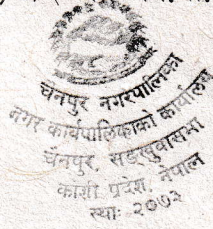 चैनपुर नगरपालिका
नगर कार्यपालिकाको कार्यालय
चैनपुर, सङखुवासभा
कोशी प्रदेश, नेपाल
स्था: २०७२